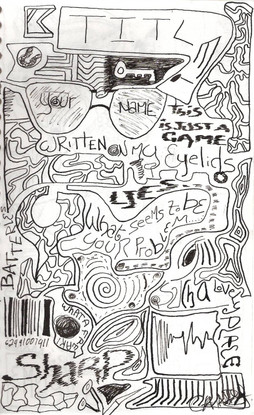 TITL
Your NAME
this
is JUST A
GAME
WRITTEN ON MY Eyelids
YES
What seems to be
your Problem
BATTERIES
a lovely
PLACE
52991001911
WHATA
SHARP